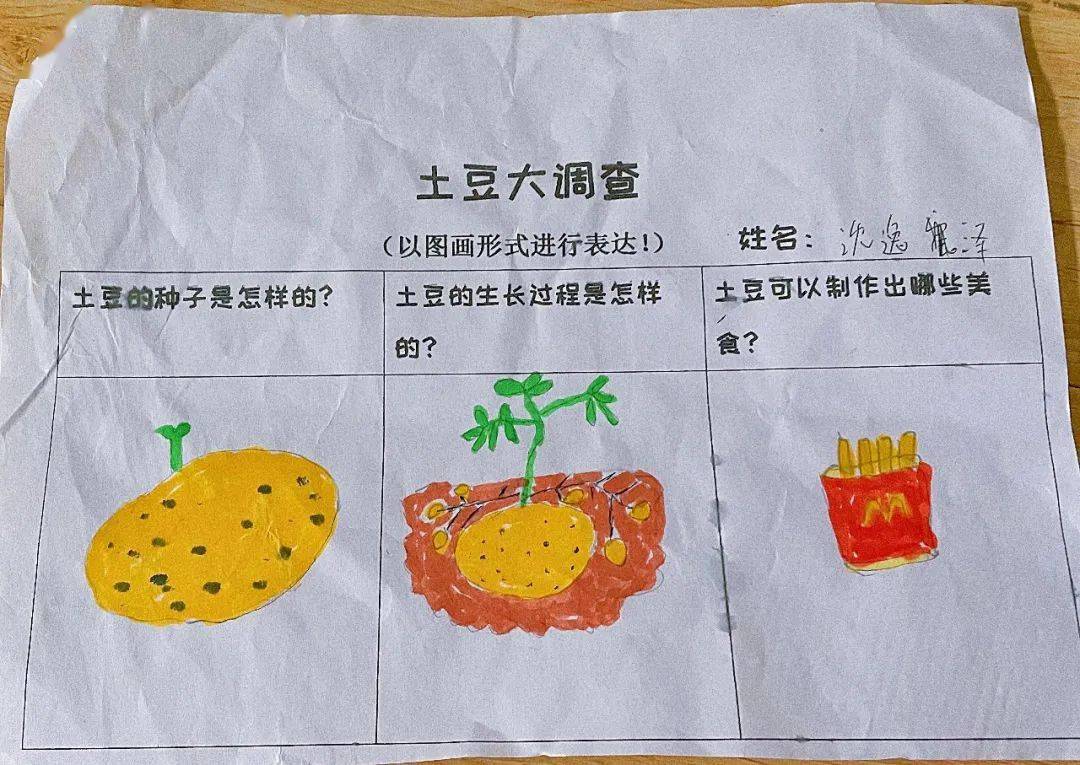 土豆大调查
（以图画形式进行表达！）
姓名：沈逸 泽
土豆的种子是怎样的？
土豆的生长过程是怎样
的？
土豆可以制作出哪些美
食？
M